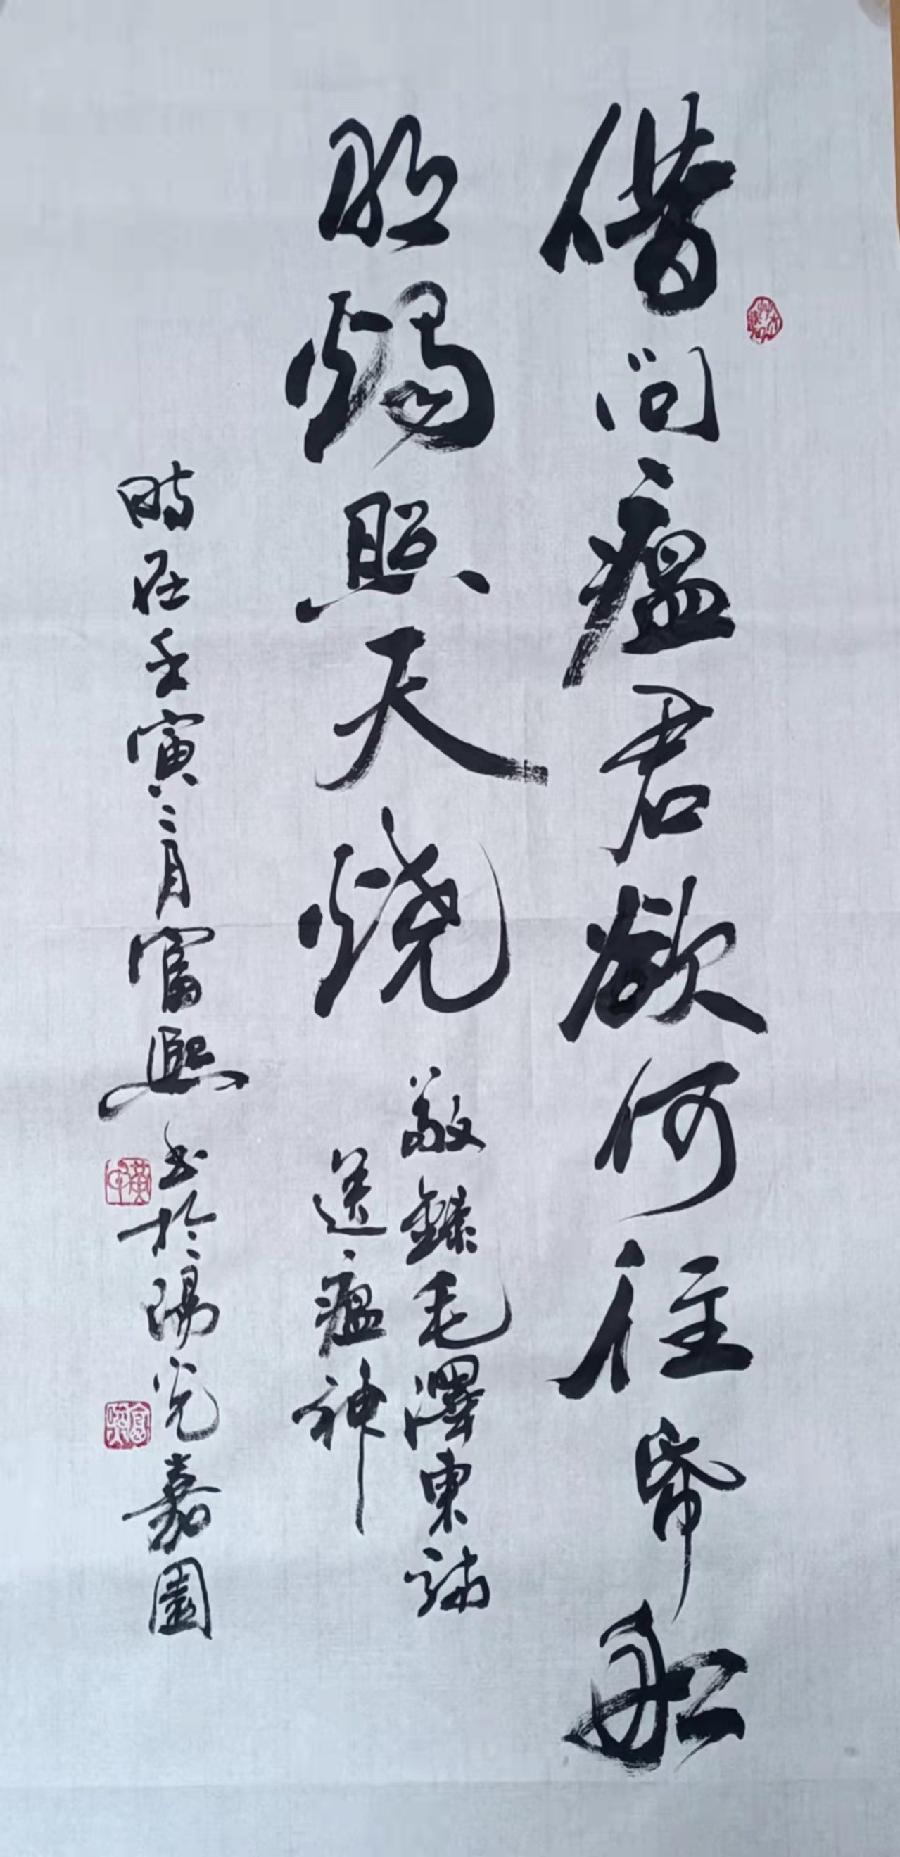 借问瘟君欲何往帋船
明燭照天烧
敬錄毛澤東詩
送瘟神
時在壬寅二月富熙书於陽光嘉園